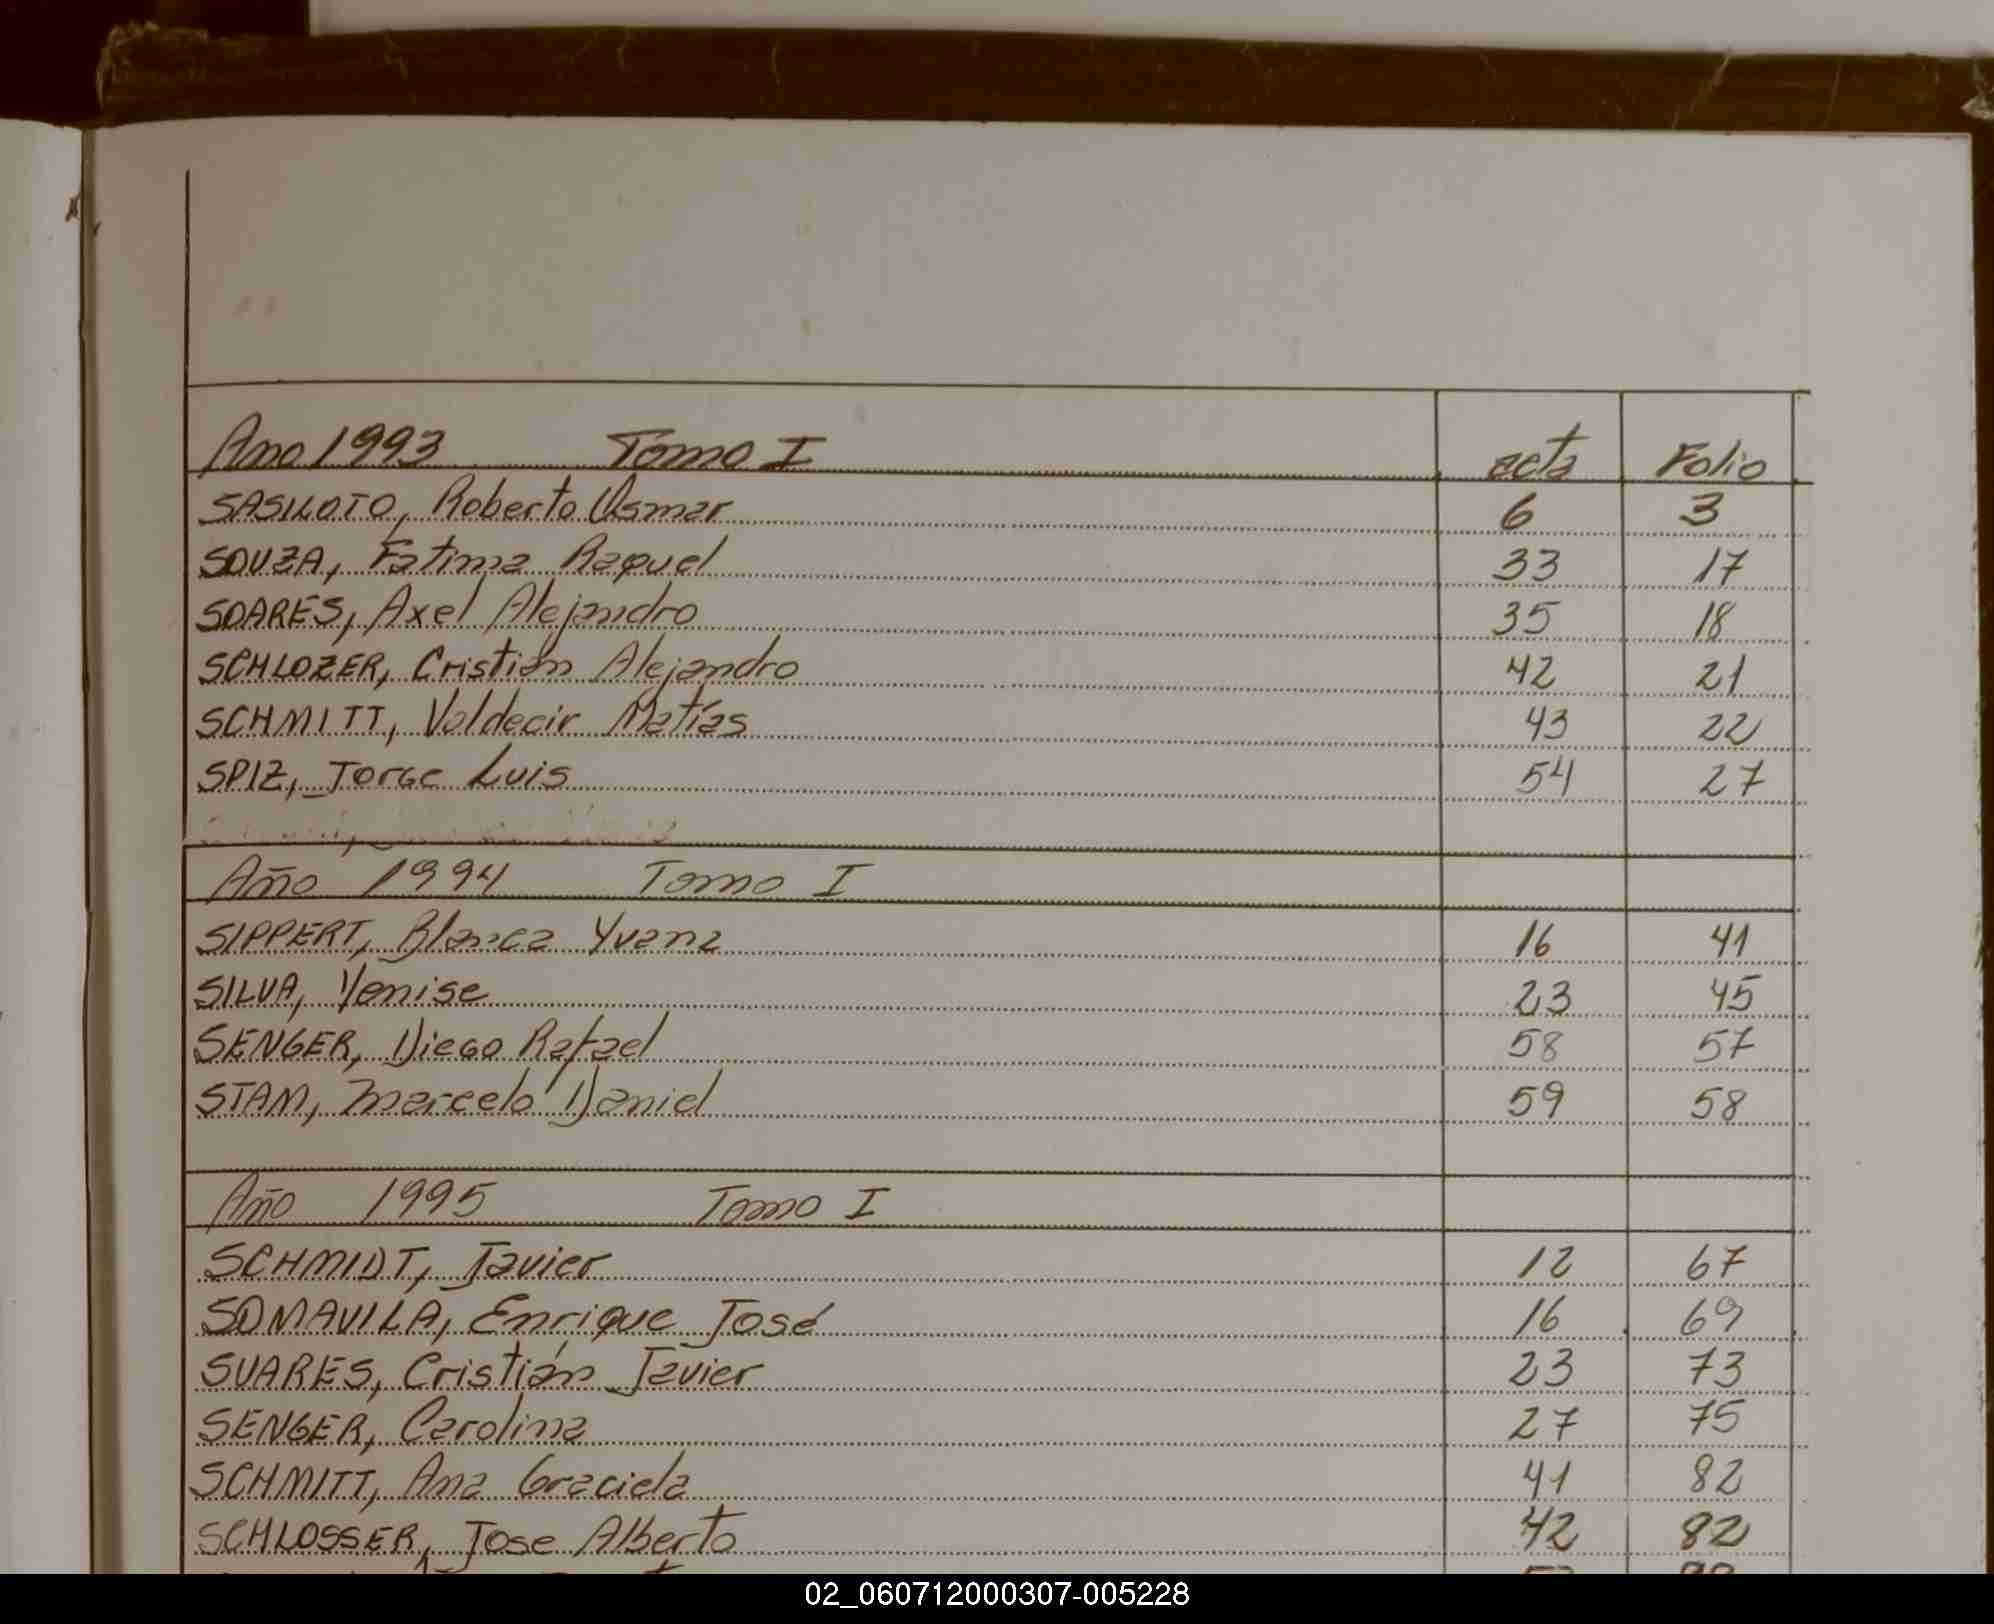 Año 1993 Tomo I acta Folio
SASILOTO, Roberto Osmar 6 3
SOUZA, Fatima Raquel 33 17
SOARES, Axel Alejandro 35 18
SCHLOZER, Cristián Alejandro 42 21
SCHMITT, Valdecir Matías 43 22
SPIZ, Jorge Luis 54 27
Año 1994 Tomo I
SIPPERT, Blanca Yvana 16 41
SILVA, Yenise 23 45
SENGER, Diego Rafael 58 57
STAM, Marcelo Daniel 59 58
Año 1995 Tomo I
SCHMIDT, Javier 12 67
SOMAVILA, Enrique José 16 69
SUARES, Cristián Javier 23 73
SENGER, Carolina 27 75
SCHMITT, Ana Graciela 41 82
SCHLOSSER, Jose Alberto 42 82
02_060712000307-005228